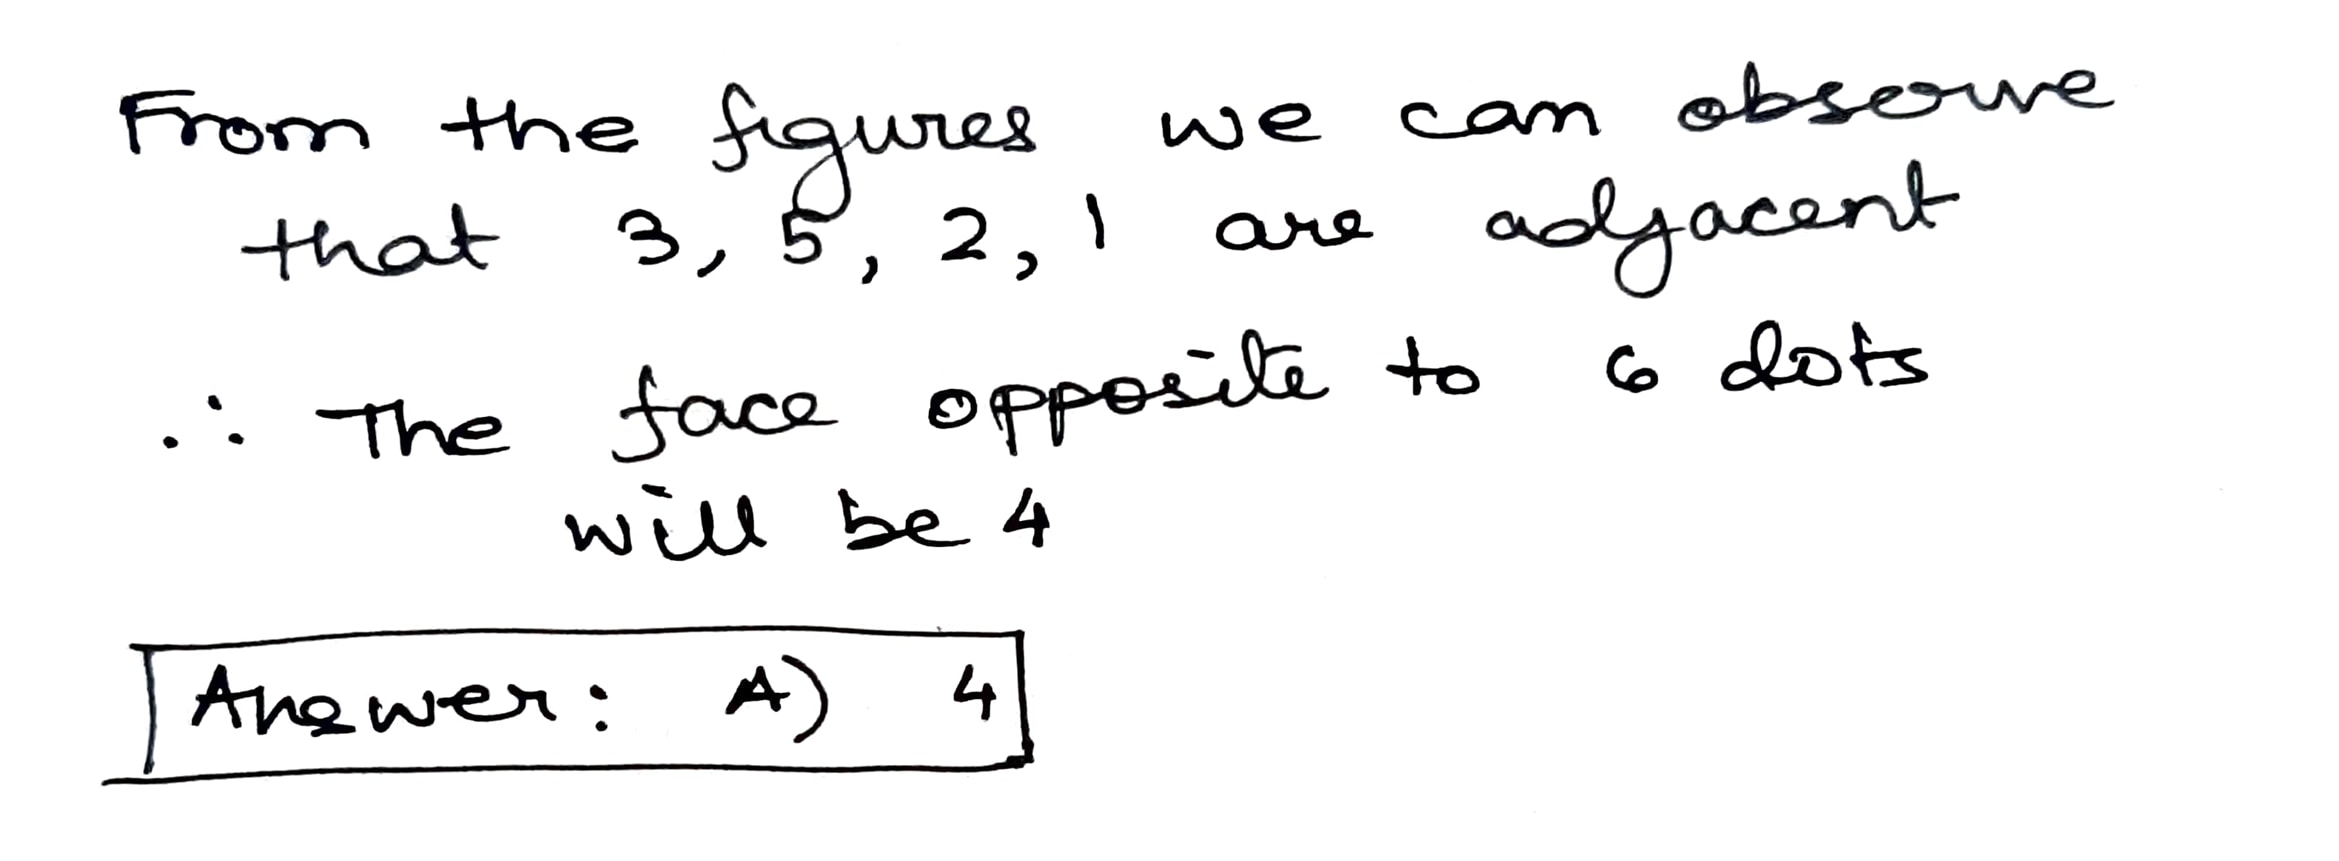 From the figures we can observe
that 3, 5, 2, 1 are adjacent
∴ The face opposite to 6 dots
will be 4
Answer: A) 4